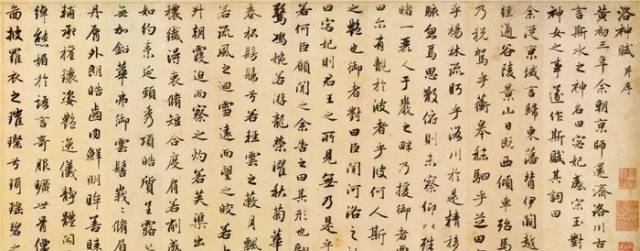 洛神賦 并序
黃初三年余朝京師還濟洛川古
言斯水之神名曰宓妃感宋玉對
神女之事遂作斯賦其詞曰
余從京域言歸東藩背伊闕越
通谷陵景山日既西傾車殆馬
乃稅駕乎蘅皋秣駟乎芝田
乎楊林流眄乎洛川於是精移
駭焉思散俯則未察仰以殊
睹一麗人于巖之畔乃援御
曰尔有覿於彼者乎彼何人斯
之艷也御者對曰臣聞河洛之
曰宓妃則君王之所見無乃是乎
若何臣願聞之余告之曰其
驚鴻婉若游龍榮曜秋菊華
春松髣髴兮若輕雲之蔽月飄
若流風之迴雪遠而望之皎若
升朝霞迫而察之灼若芙蕖出
穠纖得衷脩短合度肩
如約素延頸秀項皓質呈露
無加鉛華弗御雲髻峩峩脩
丹脣外朗皓齒内鮮明眸善睞
輔承權瓌姿艷逸儀靜體閑
綽態媚於語言奇服曠世骨像
圖披羅衣之璀璨兮珥瑤碧之